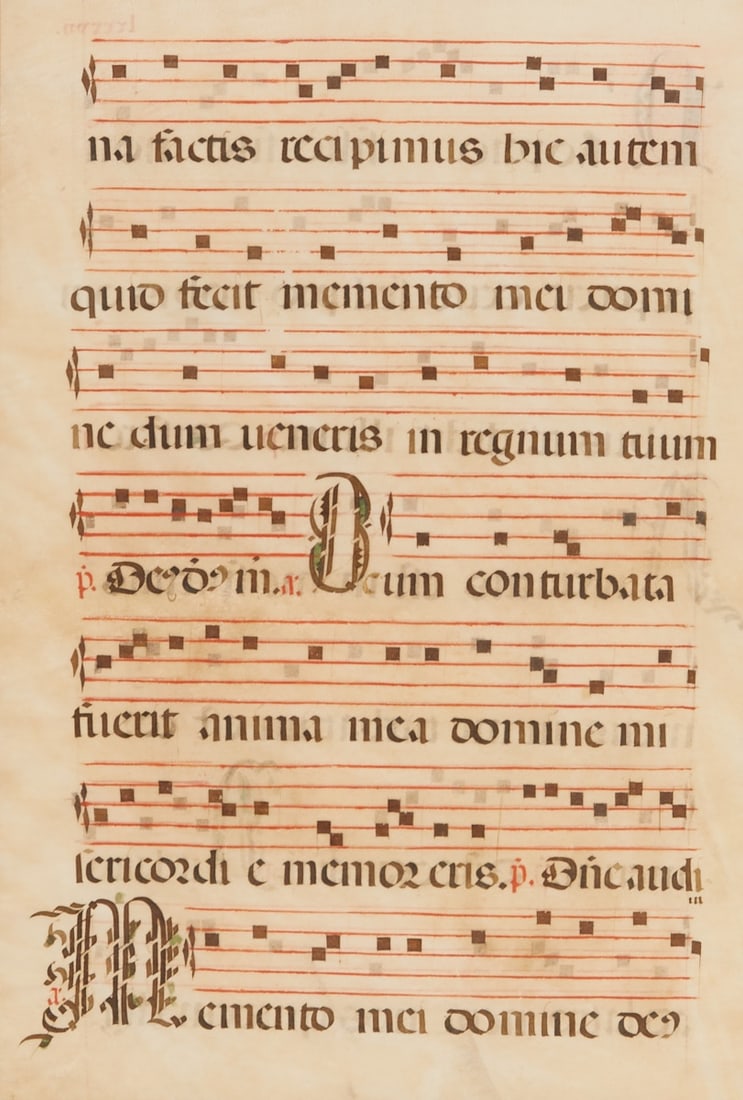 na factis recipimus hic autem
quid fecit memento mei domi
ne dum veneris in regnum tuum
p. De9 de9 m. a. Cum conturbata
fuerit anima mea domine mi
sericordi e memor eris. p. Dñe audi
a. Memento mei domine de9